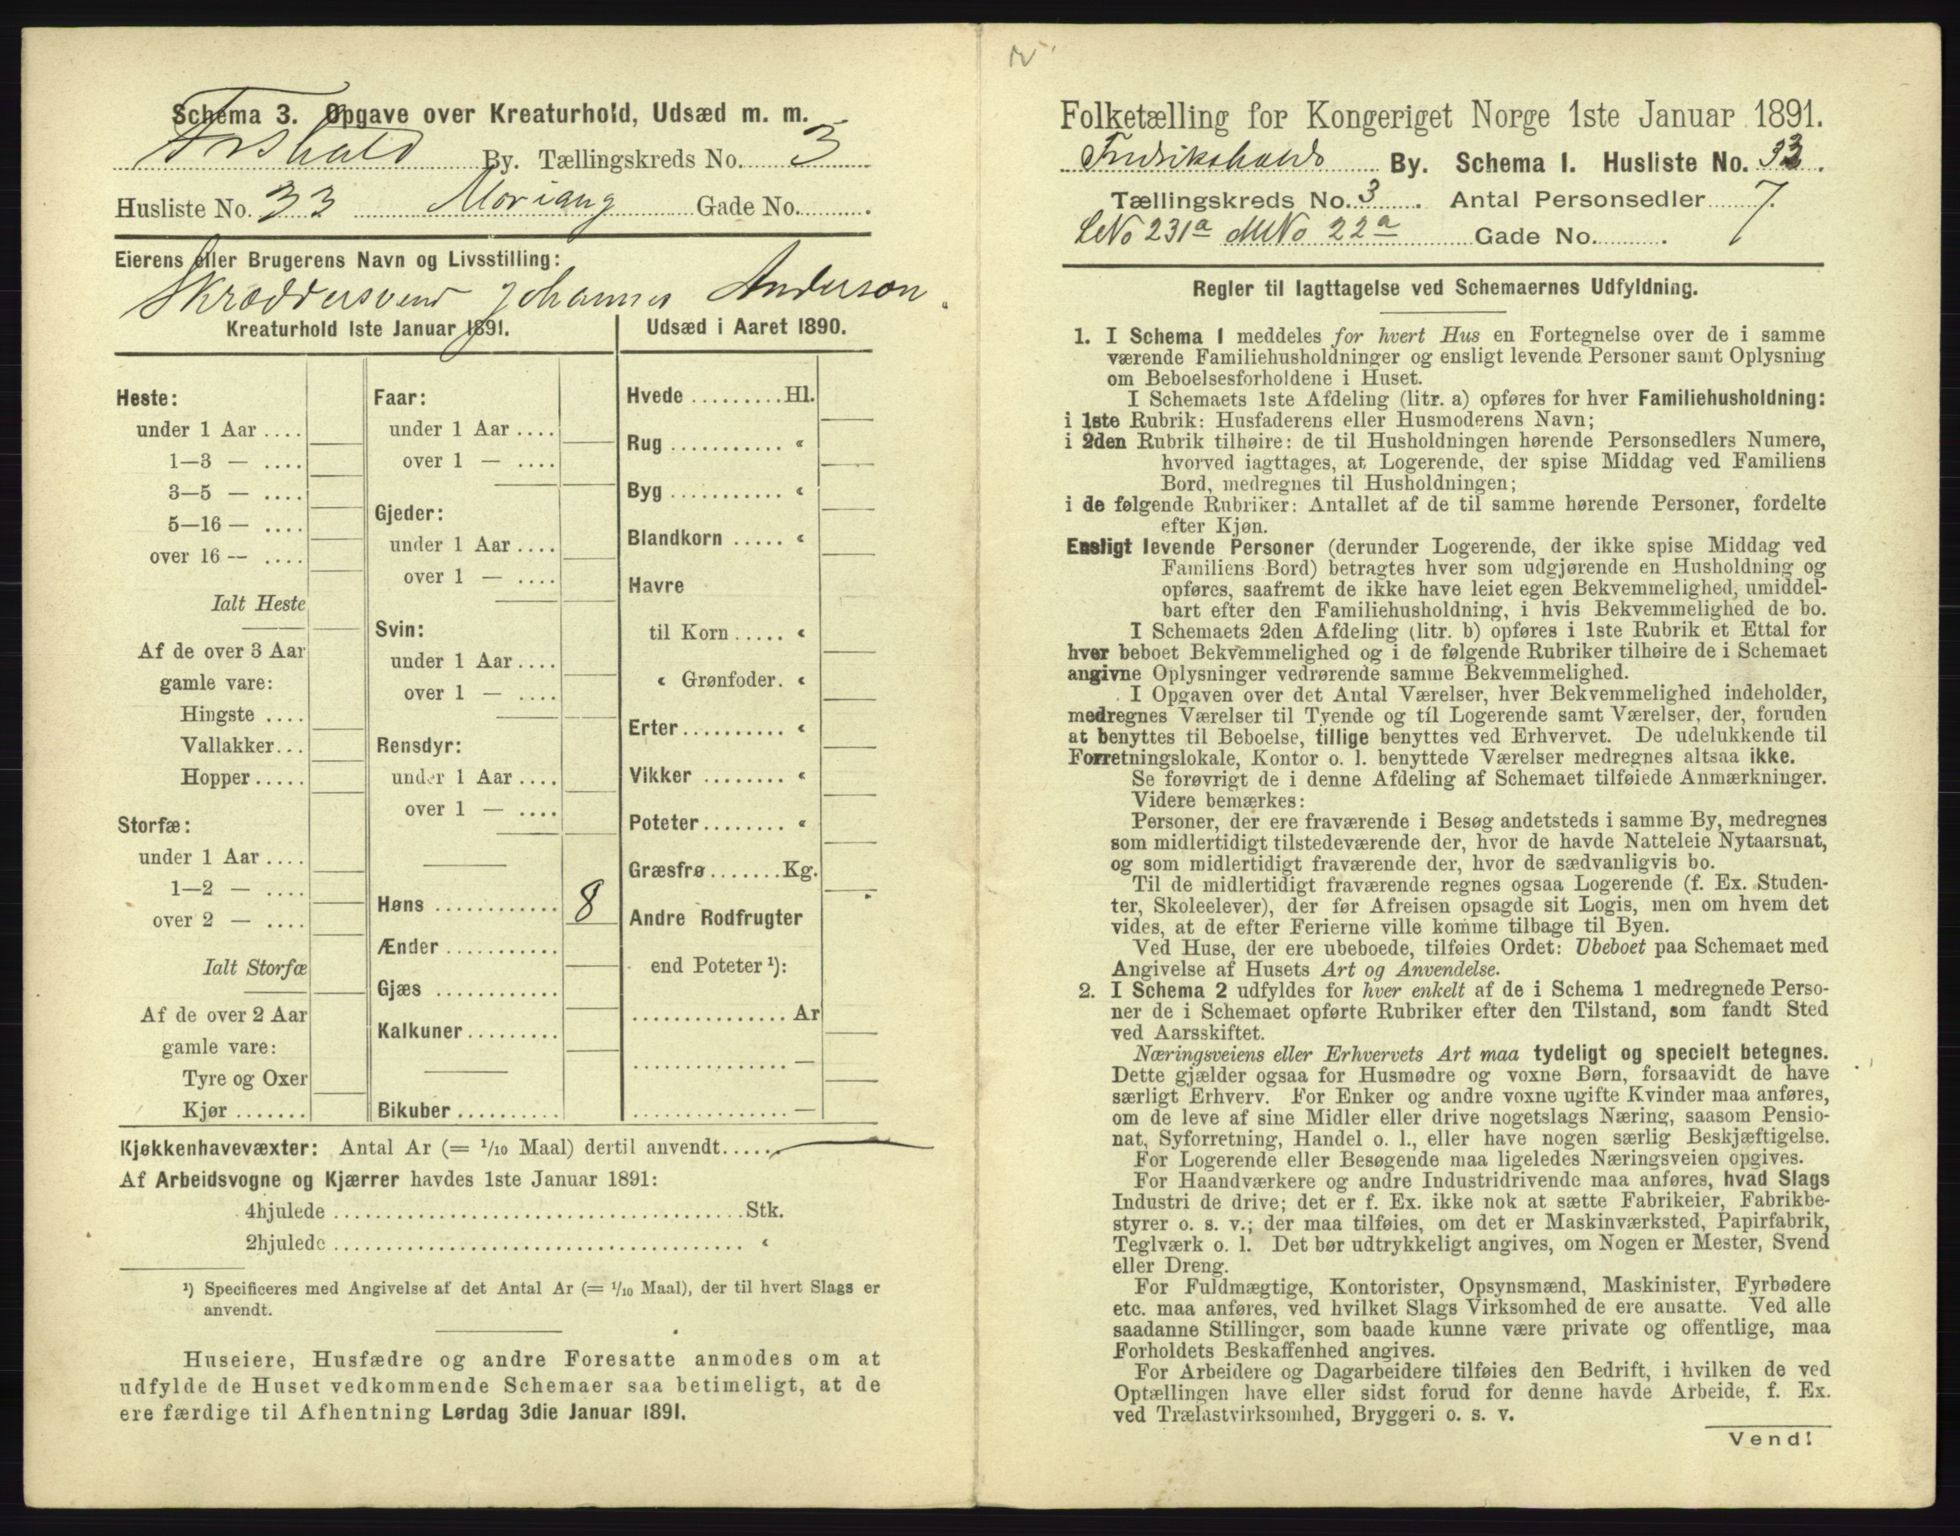 Schema 3. Opgave over Kreaturhold, Udsæd m. m.
Frshald By. Tællingskreds No. 3
Husliste No. 33 Gade No.
Eierens eller Brugerens Navn og Livsstilling:
Skræddersvend Johannes Anderson.
Kreaturhold 1ste Januar 1891.
Heste:
under 1 Aar ....
1—3 — ....
3—5 — ....
5—16 — ....
over 16 — ....
Ialt Heste
Af de over 3 Aar
gamle vare:
Hingste ....
Vallakker...
Hopper .....
Storfæ:
under 1 Aar ....
1—2 — ....
over 2 — ....
Ialt Storfæ
Af de over 2 Aar
gamle vare:
Tyre og Oxer
Kjør .......
Faar:
under 1 Aar ....
over 1 — ....
Gjeder:
under 1 Aar ....
over 1 — ....
Svin:
under 1 Aar ....
over 1 — ....
Rensdyr:
under 1 Aar ....
over 1 — ....
Høns ............ 8
Ænder ...........
Gjæs ............
Kalkuner.........
Bikuber ..........
Udsæd i Aaret 1890.
Hvede .........Hl.
Rug ........... «
Byg ........... «
Blandkorn ..... «
Havre
til Korn ..... «
« Grønfoder. «
Erter.......... «
Vikker ........ «
Poteter........ «
Græsfrø.......Kg.
Andre Rodfrugter
end Poteter ¹):
...............Ar
...............—
...............—
Kjøkkenhavevæxter: Antal Ar (= 1/10 Maal) dertil anvendt.....
Af Arbeidsvogne og Kjærrer havdes 1ste Januar 1891:
4hjulede ......................................Stk.
2hjulede ...................................... «
¹) Specificeres med Angivelse af det Antal Ar (= 1/10 Maal), der til hvert Slags er
anvendt.
Huseiere, Husfædre og andre Foresatte anmodes om at
udfylde de Huset vedkommende Schemaer saa betimeligt, at de
ere færdige til Afhentning Lørdag 3die Januar 1891.
Folketælling for Kongeriget Norge 1ste Januar 1891.
Fredrikshalds By. Schema 1. Husliste No. 33.
Tællingskreds No. 3. Antal Personsedler 7.
LNo 231a MNo 22a Gade No. .
Regler til Iagttagelse ved Schemaernes Udfyldning.
1. I Schema 1 meddeles for hvert Hus en Fortegnelse over de i samme
værende Familiehusholdninger og ensligt levende Personer samt Oplysning
om Beboelsesforholdene i Huset.
I Schemaets 1ste Afdeling (litr. a) opføres for hver Familiehusholdning:
i 1ste Rubrik: Husfaderens eller Husmoderens Navn;
i 2den Rubrik tilhøire: de til Husholdningen hørende Personsedlers Numere,
hvorved iagttages, at Logerende, der spise Middag ved Familiens
Bord, medregnes til Husholdningen;
i de følgende Rubriker: Antallet af de til samme hørende Personer, fordelte
efter Kjøn.
Ensligt levende Personer (derunder Logerende, der ikke spise Middag ved
Familiens Bord) betragtes hver som udgjørende en Husholdning og
opføres, saafremt de ikke have leiet egen Bekvemmelighed, umiddel-
bart efter den Familiehusholdning, i hvis Bekvemmelighed de bo.
I Schemaets 2den Afdeling (litr. b) opføres i 1ste Rubrik et Ettal for
hver beboet Bekvemmelighed og i de følgende Rubriker tilhøire de i Schemaet
angivne Oplysninger vedrørende samme Bekvemmelighed.
I Opgaven over det Antal Værelser, hver Bekvemmelighed indeholder,
medregnes Værelser til Tyende og til Logerende samt Værelser, der, foruden
at benyttes til Beboelse, tillige benyttes ved Erhvervet. De udelukkende til
Forretningslokale, Kontor o. l. benyttede Værelser medregnes altsaa ikke.
Se forøvrigt de i denne Afdeling af Schemaet tilføiede Anmærkninger.
Videre bemærkes:
Personer, der ere fraværende i Besøg andetsteds i samme By, medregnes
som midlertidigt tilstedeværende der, hvor de havde Natteleie Nytaarsnat,
og som midlertidigt fraværende der, hvor de sædvanligvis bo.
Til de midlertidigt fraværende regnes ogsaa Logerende (f. Ex. Studen-
ter, Skoleelever), der før Afreisen opsagde sit Logis, men om hvem det
vides, at de efter Ferierne ville komme tilbage til Byen.
Ved Huse, der ere ubeboede, tilføies Ordet: Ubeboet paa Schemaet med
Angivelse af Husets Art og Anvendelse.
2. I Schema 2 udfyldes for hver enkelt af de i Schema 1 medregnede Perso-
ner de i Schemaet opførte Rubriker efter den Tilstand, som fandt Sted
ved Aarsskiftet.
Næringsveiens eller Erhvervets Art maa tydeligt og specielt betegnes.
Dette gjælder ogsaa for Husmødre og voxne Børn, forsaavidt de have
særligt Erhverv. For Enker og andre voxne ugifte Kvinder maa anføres,
om de leve af sine Midler eller drive nogetslags Næring, saasom Pensio-
nat, Syforretning, Handel o. l., eller have nogen særlig Beskjæftigelse.
For Logerende eller Besøgende maa ligeledes Næringsveien opgives.
For Haandværkere og andre Industridrivende maa anføres, hvad Slags
Industri de drive; det er f. Ex. ikke nok at sætte Fabrikeier, Fabrikbe-
styrer o. s. v.; der maa tilføies, om det er Maskinværksted, Papirfabrik,
Teglværk o. l. Det bør udtrykkeligt angives, om Nogen er Mester, Svend
eller Dreng.
For Fuldmægtige, Kontorister, Opsynsmænd, Maskinister, Fyrbødere
etc. maa anføres, ved hvilket Slags Virksomhed de ere ansatte. Ved alle
saadanne Stillinger, som baade kunne være private og offentlige, maa
Forholdets Beskaffenhed angives.
For Arbeidere og Dagarbeidere tilføies den Bedrift, i hvilken de ved
Optællingen have eller sidst forud for denne havde Arbeide, f. Ex.
ved Trælastvirksomhed, Bryggeri o. s. v.
Vend!